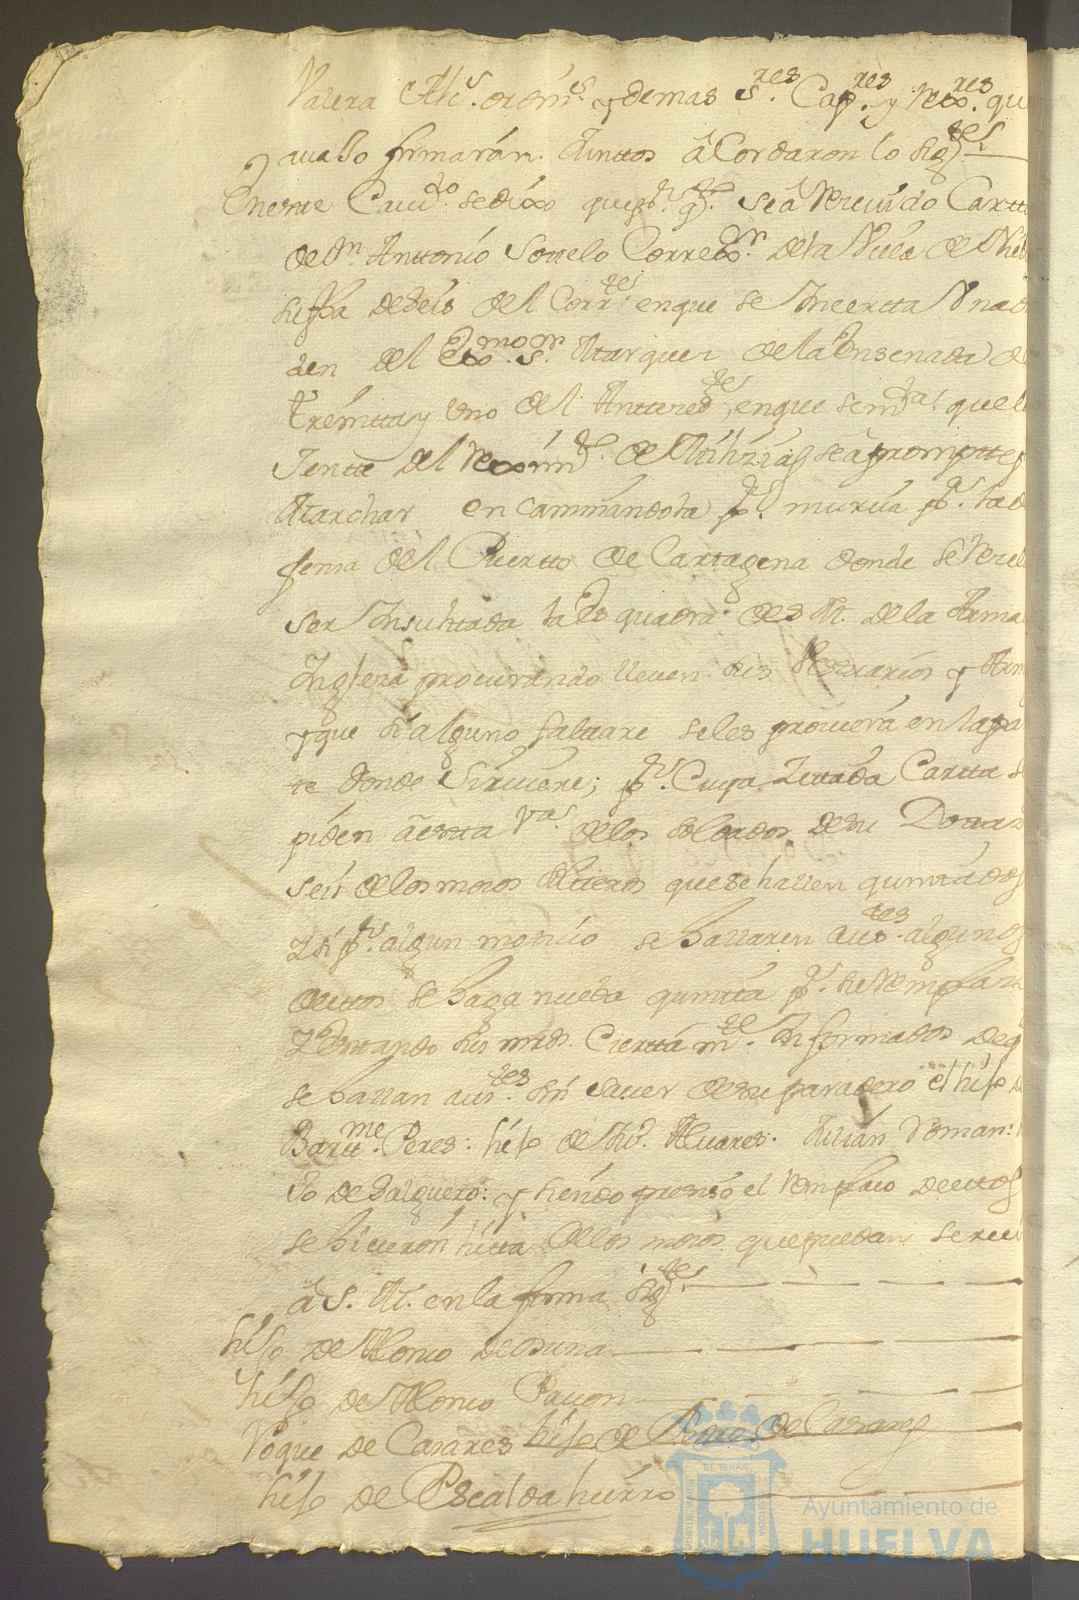 Valera Alc.s ordin.s y demas s.res Cap.res y Rex.res qu
avajo firmarán Juntos acordaron lo sig.te
Eneste Cavd.o sedixo que por q.to seá Recivido Cartta
de D.n Anttonio Sottelo Correx.or dela Villa de Nieb
su fha deseis del Corr.te enque se Incertta Una or
den del Ex.mo s.or Marques dela Ensenada de
treintta y Uno del Antteced.te, enque sem.da que el
Jente del Reximi.to de Milizias seapromptte p
Marchar en cammandola p.a murcia p.a la de
fensa del Puertto de Cartagena donde se Recela
ser Insultada la Esquadra de S. M. de la Arma
Inglesa procurando lleven sus Vestuarios y Arm
y que si alguno faltare seles proveera en la par
te donde Sirviere; p.r Cuya Zittada Cartta se
piden a estta v.a delos soldados desu Dottaz
seis delos mosos solteros quese hallen quinttados
Y si p.r algun motivo se hallaren aus.tes algunos
destos se haga nueba quintta p.a su Remplazo
Y Esttando sus mrds. Ciertta m.te Informados deq
se hallan aus.tes sin saver desu paradero el hijo d
Bartt.me Peres: hijo de Alvares. Julián Roman:
jo de Salguero: y siendo presiso el Remplaso destos
se hicieron lista delos mosos que puedan serui
á S. M. en la forma sig.te
hijo de Alonso de Osuna
hijo de Alonso Pavon
Roque de Casares hijo de de Casares
hijo de Escaldahierro
Ayuntamiento de
HUELVA